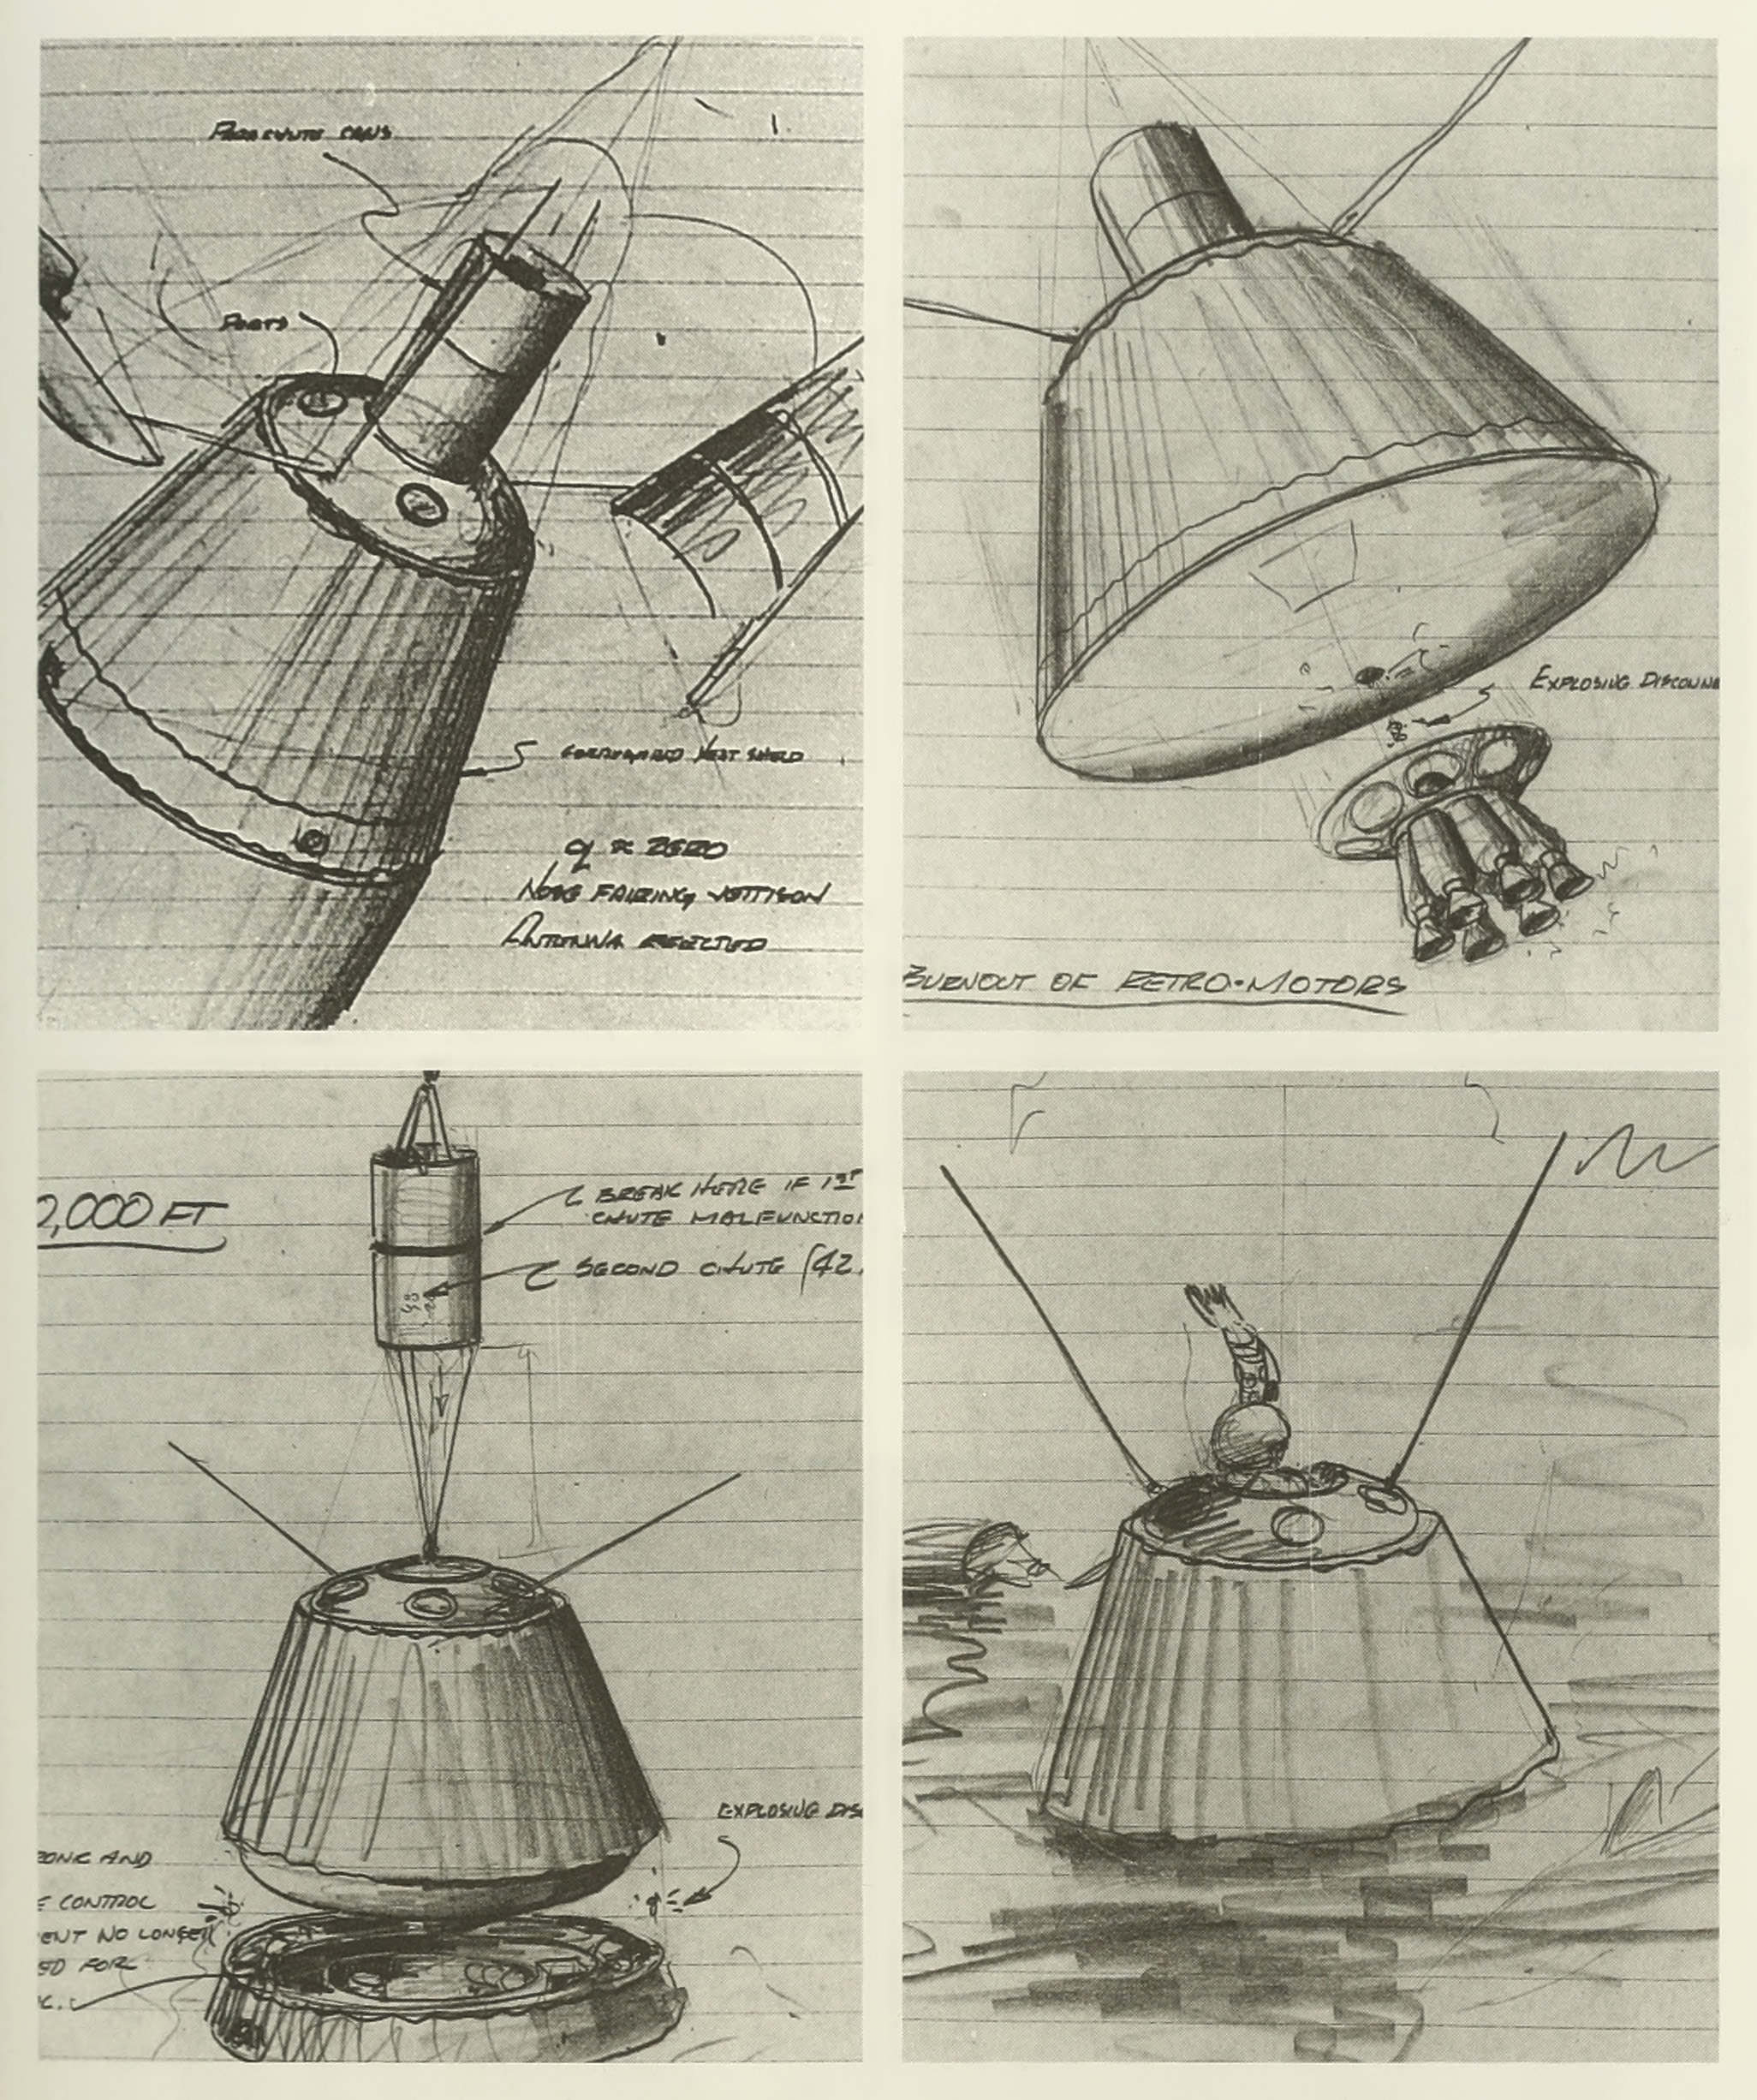 PARACHUTE CANS
PORTS
CORRUGATED HEAT SHIELD
q ≈ ZERO
NOSE FAIRING JETTISON
ANTENNA ERECTED
EXPLOSIVE DISCONNE
BURNOUT OF RETRO-MOTORS
0,000 FT
BREAK HERE IF 1ST
CHUTE MALFUNCTION
SECOND CHUTE (42
EXPLOSIVE DISC
AND
E CONTROL
ENT NO LONGER
ED FOR